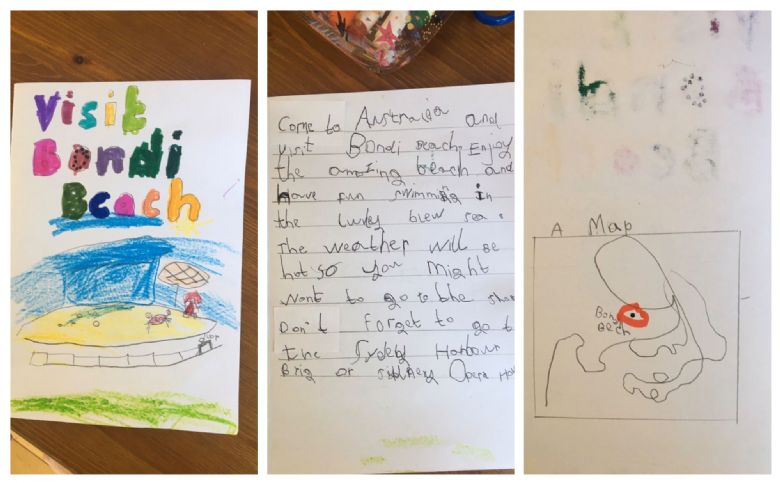 Visit
Bondi
Beach
Come to Australia and
visit Bondi beach. Enjoy
the amazing beach and
have fun swimming in
the blew sea.
The weather will be
hot so you might
want to go to the
Don't forget to go t
the Harbour
Brig or Opera Ho
A Map
Bon
Bech